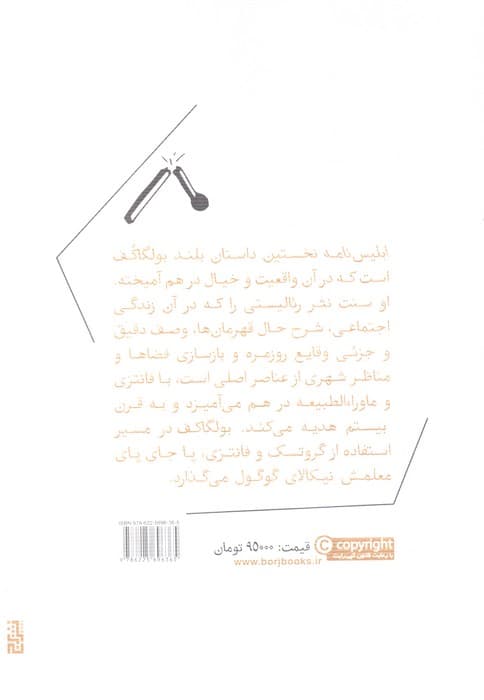 ابلیس‌نامه نخستین داستان بلند بولگاکُف
است که در آن واقعیت و خیال در هم آمیخته.
او سنت نثر رئالیستی را که در آن زندگی
اجتماعی، شرح حال قهرمان‌ها، وصف دقیق
و جزئی وقایع روزمره و بازسازی فضاها و
مناظر شهری از عناصر اصلی است، با فانتزی
و ماوراءالطبیعه در هم می‌آمیزد و به قرن
بیستم هدیه می‌کند. بولگاکف در مسیر
استفاده از گروتسک و فانتزی، پا جای پای
معلمش نیکالای گوگول می‌گذارد.
copyright
قیمت: ۹۵۰۰۰ تومان
www.borjbooks.ir